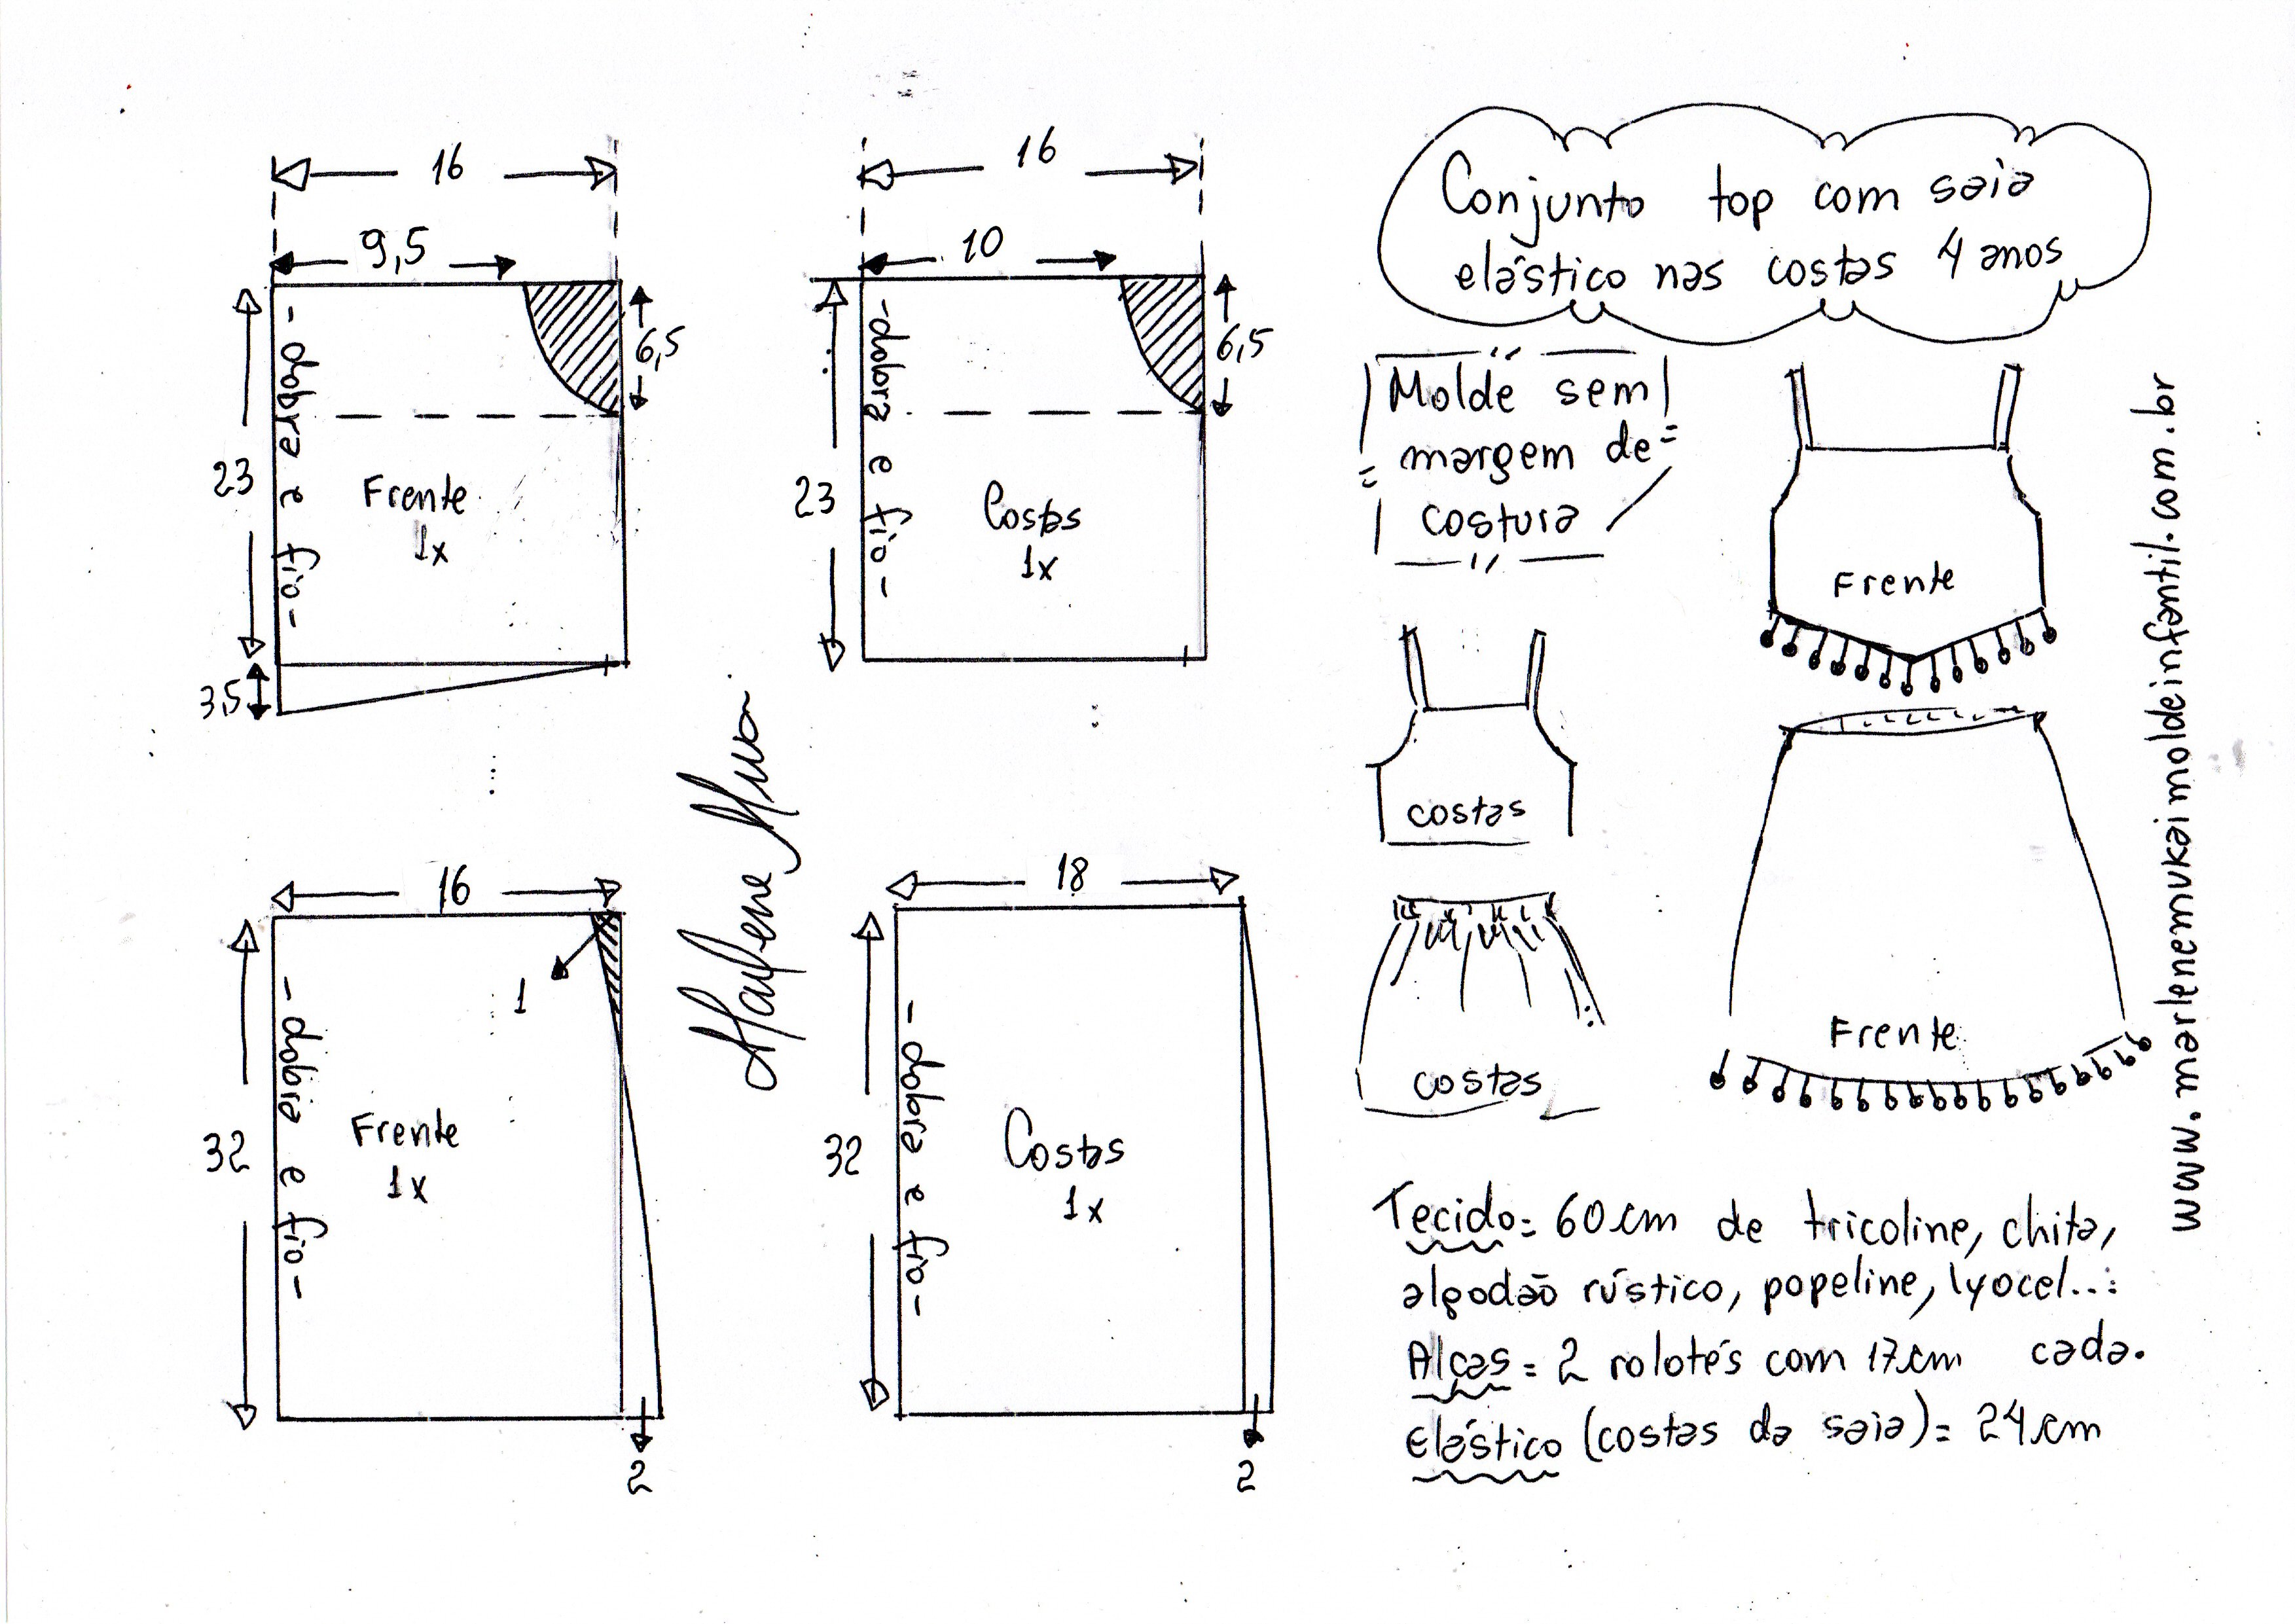 16
9,5
6,5
23
- dobra e fio -
Frente
1x
3,5
16
10
6,5
23
- dobra e fio -
Costas
1x
Conjunto top com saia
elástico nas costas 4 anos
Molde sem
margem de
costura
Frente
costas
Frente
costas
www.marlenemukaimoldeinfantil.com.br
Marlene Mukai
16
1
32
- dobra e fio -
Frente
1x
2
18
32
- dobra e fio -
Costas
1x
2
Tecido = 60 cm de tricoline, chita,
algodão rústico, popeline, lyocel...
Alças = 2 rolotés com 17 cm cada.
Elástico (costas da saia) = 24 cm